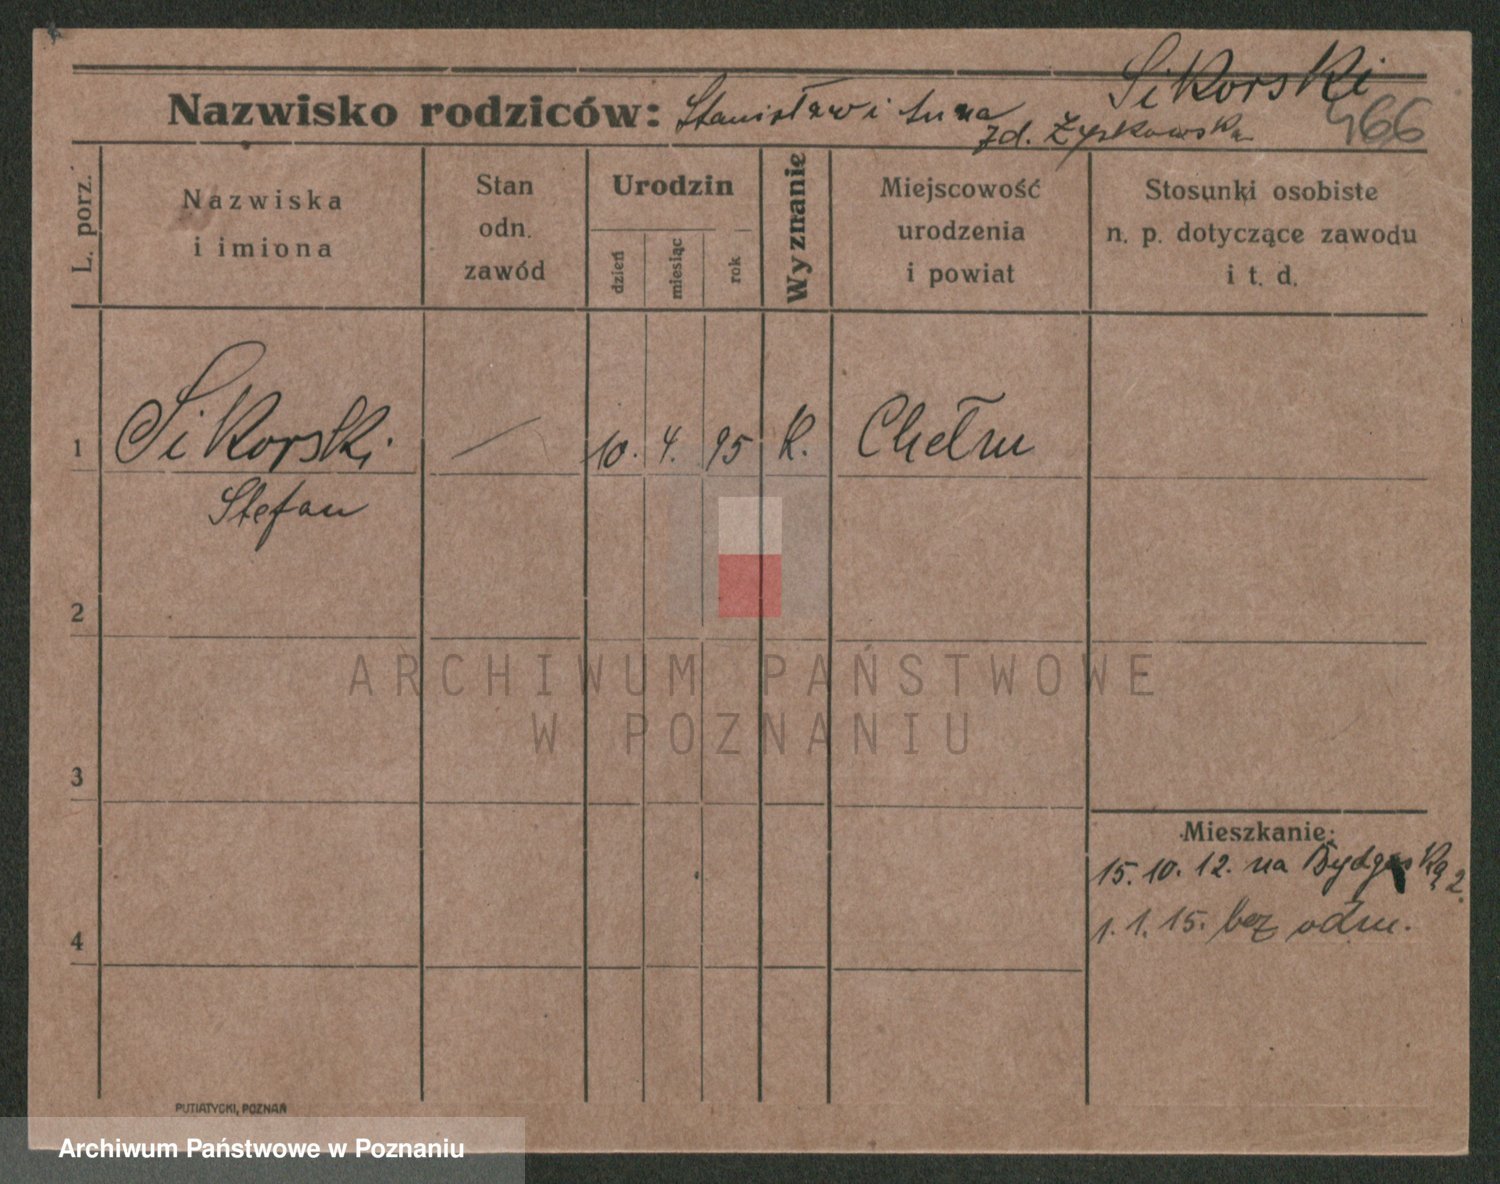 Sikorski
Nazwisko rodziców: Stanisław i Anna
zd. Żyskowska
466
L. porz.
Nazwiska
i imiona
Stan
odn.
zawód
Urodzin
dzień
miesiąc
rok
Wyznanie
Miejscowość
urodzenia
i powiat
Stosunki osobiste
n. p. dotyczące zawodu
i t. d.
1 Sikorski — 10. 4. 95 K. Chełm
Stefan
2
3
4
Mieszkanie:
15. 10. 12. na 2.
1. 1. 15. bez odm.
PUTIATYCKI, POZNAŃ
ARCHIWUM PAŃSTWOWE
W POZNANIU
Archiwum Państwowe w Poznaniu